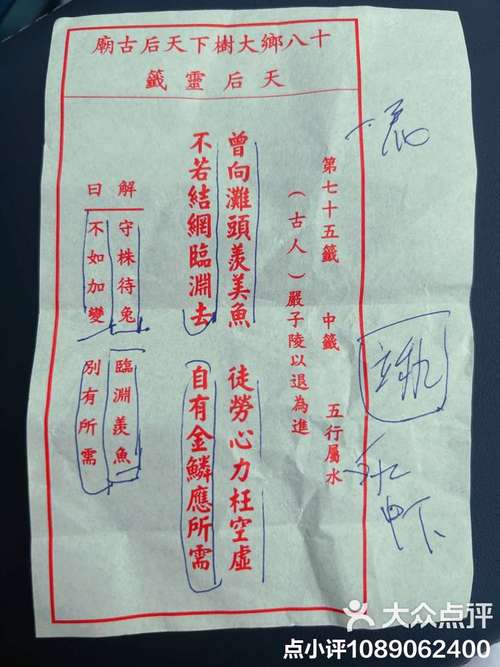 十八鄉大樹下天后古廟
天后靈籤
第七十五籤 中籤 五行屬水
（古人）嚴子陵以退為進
曾向灘頭羨美魚 徒勞心力枉空虛
不若結網臨淵去 自有金鱗應所需
解曰
守株待兔 臨淵羨魚
不如加變 別有所需
大众点评
点小评1089062400